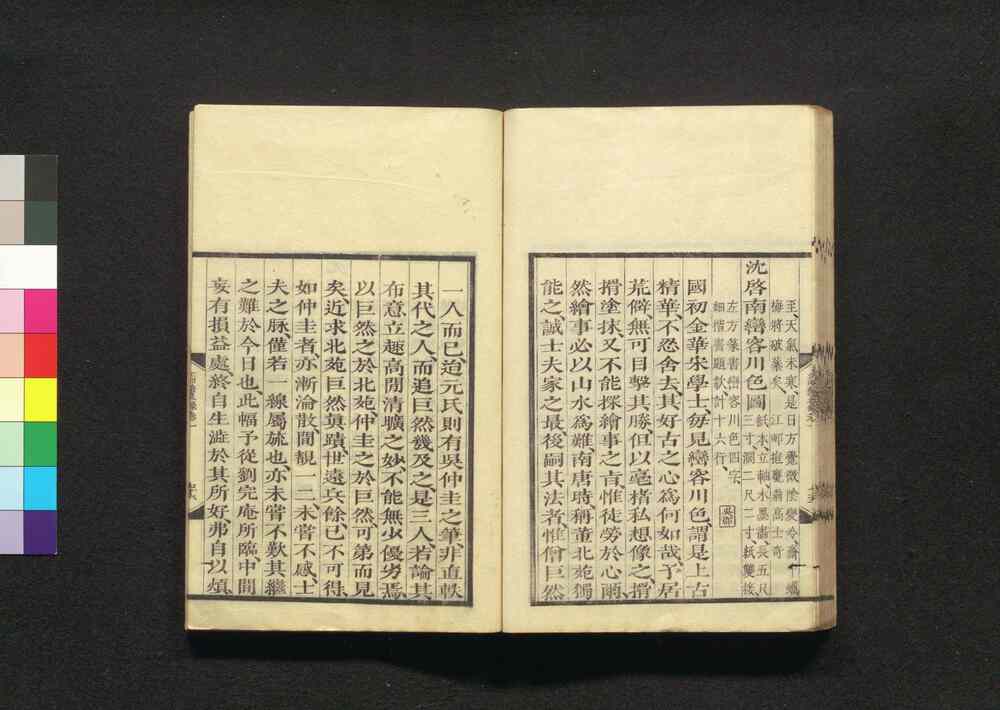 至、天氣未寒是日方覺微陰變令、
梅將破蕊矣、江邨抱甕翁高士奇
沈啓南巒容川色圖紙本立軸水墨畵長五尺
三寸濶二尺二寸、紙雙接、
左方篆書巒容川色四字、
細楷書題款計十六行、
國初金華宋學士、每見巒容川色、謂是上古
精華、不忍舍去、其好古之心爲何如哉、予居
荒僻、無可目擊其勝、但以毫楮私想像之、揩
揩塗抹、又不能探繪事之旨、惟徒勞於心爾、
然繪事必以山水爲難、南唐時、稱董北苑獨
能之、誠士夫家之最後嗣其法者、惟僧巨然
一人而已、迨元氏則有吳仲圭之筆、非直軼
其代之人、而追巨然幾及之、是三人若論其
布意立趣、高閒清曠之妙、不能無少優劣焉、
以巨然之於北苑、仲圭之於巨然、可第而見
矣、近求北苑巨然眞蹟、世遠兵餘、已不可得、
如仲圭者、亦漸淪散、間覩一二、未嘗不感、士
夫之脉僅若一線屬旒也、亦未嘗不歎其繼
之難於今日也、此幅予從劉完庵所臨、中間
妄有損益處、終自生澁於其所好、弗自以煩、